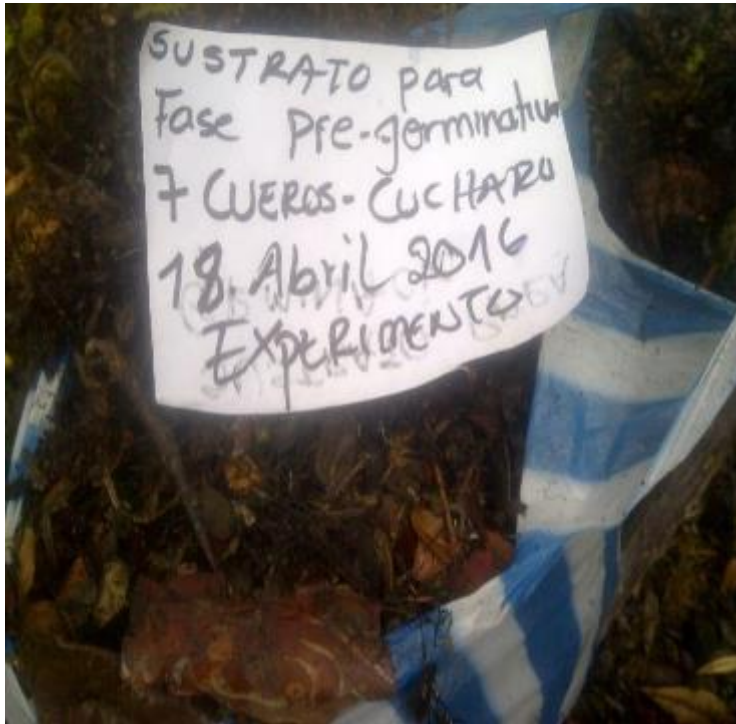 SUSTRATO para
Fase Pre-germinativa
7 CUEROS - CUCHARO
18. Abril 2016
EXPERIMENTO